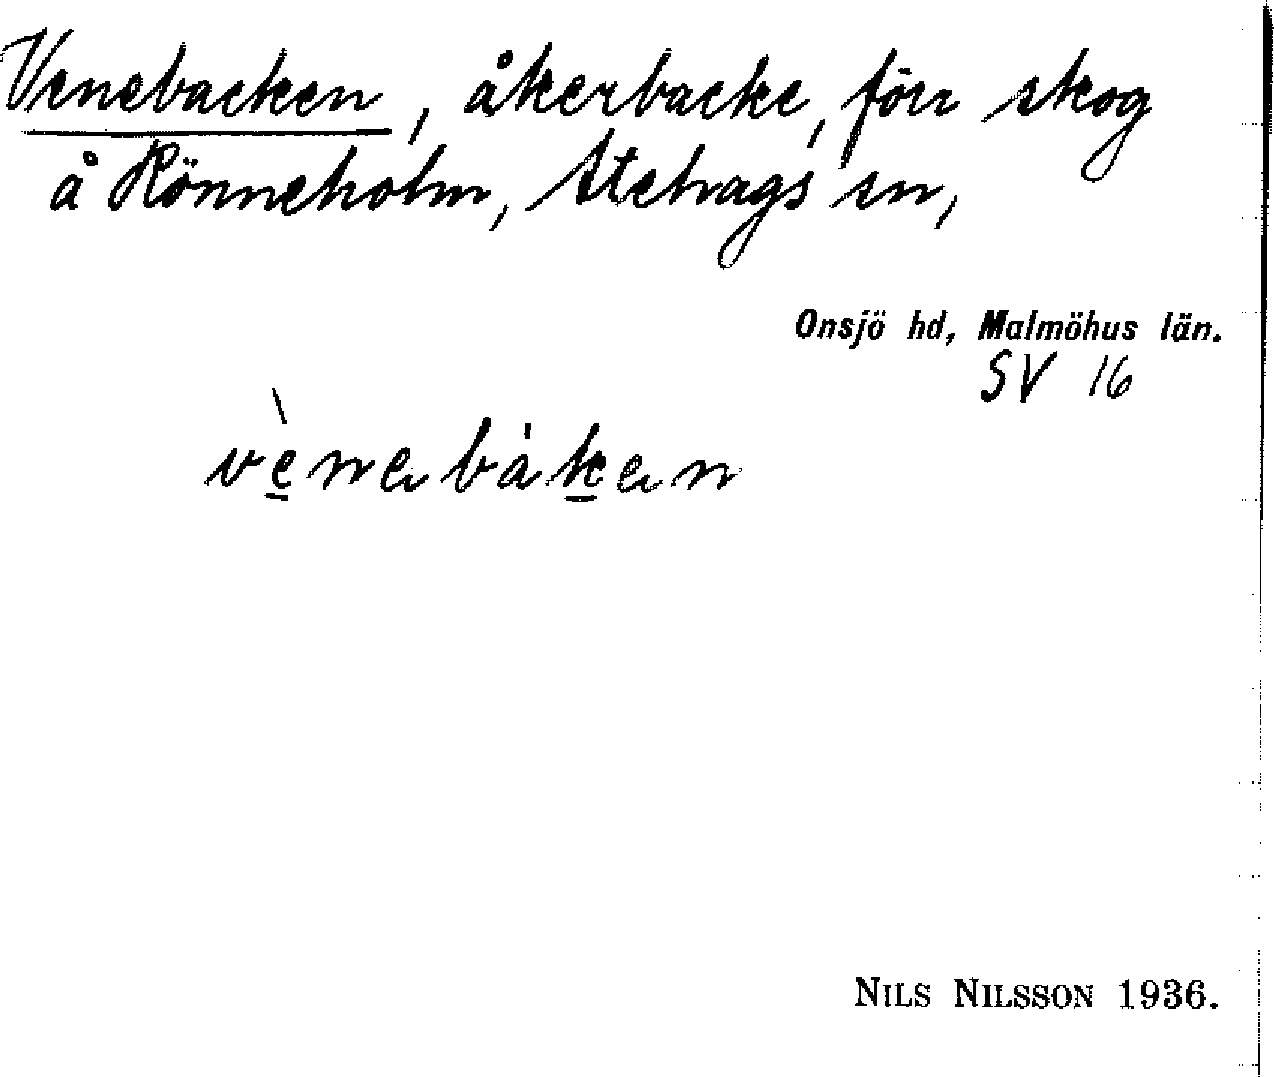 Venebacken, åkerbacke, förr skog
å Rönneholm, Stehags sn,
Onsjö hd, Malmöhus län.
SV 16
vènebáken
NILS NILSSON 1936.